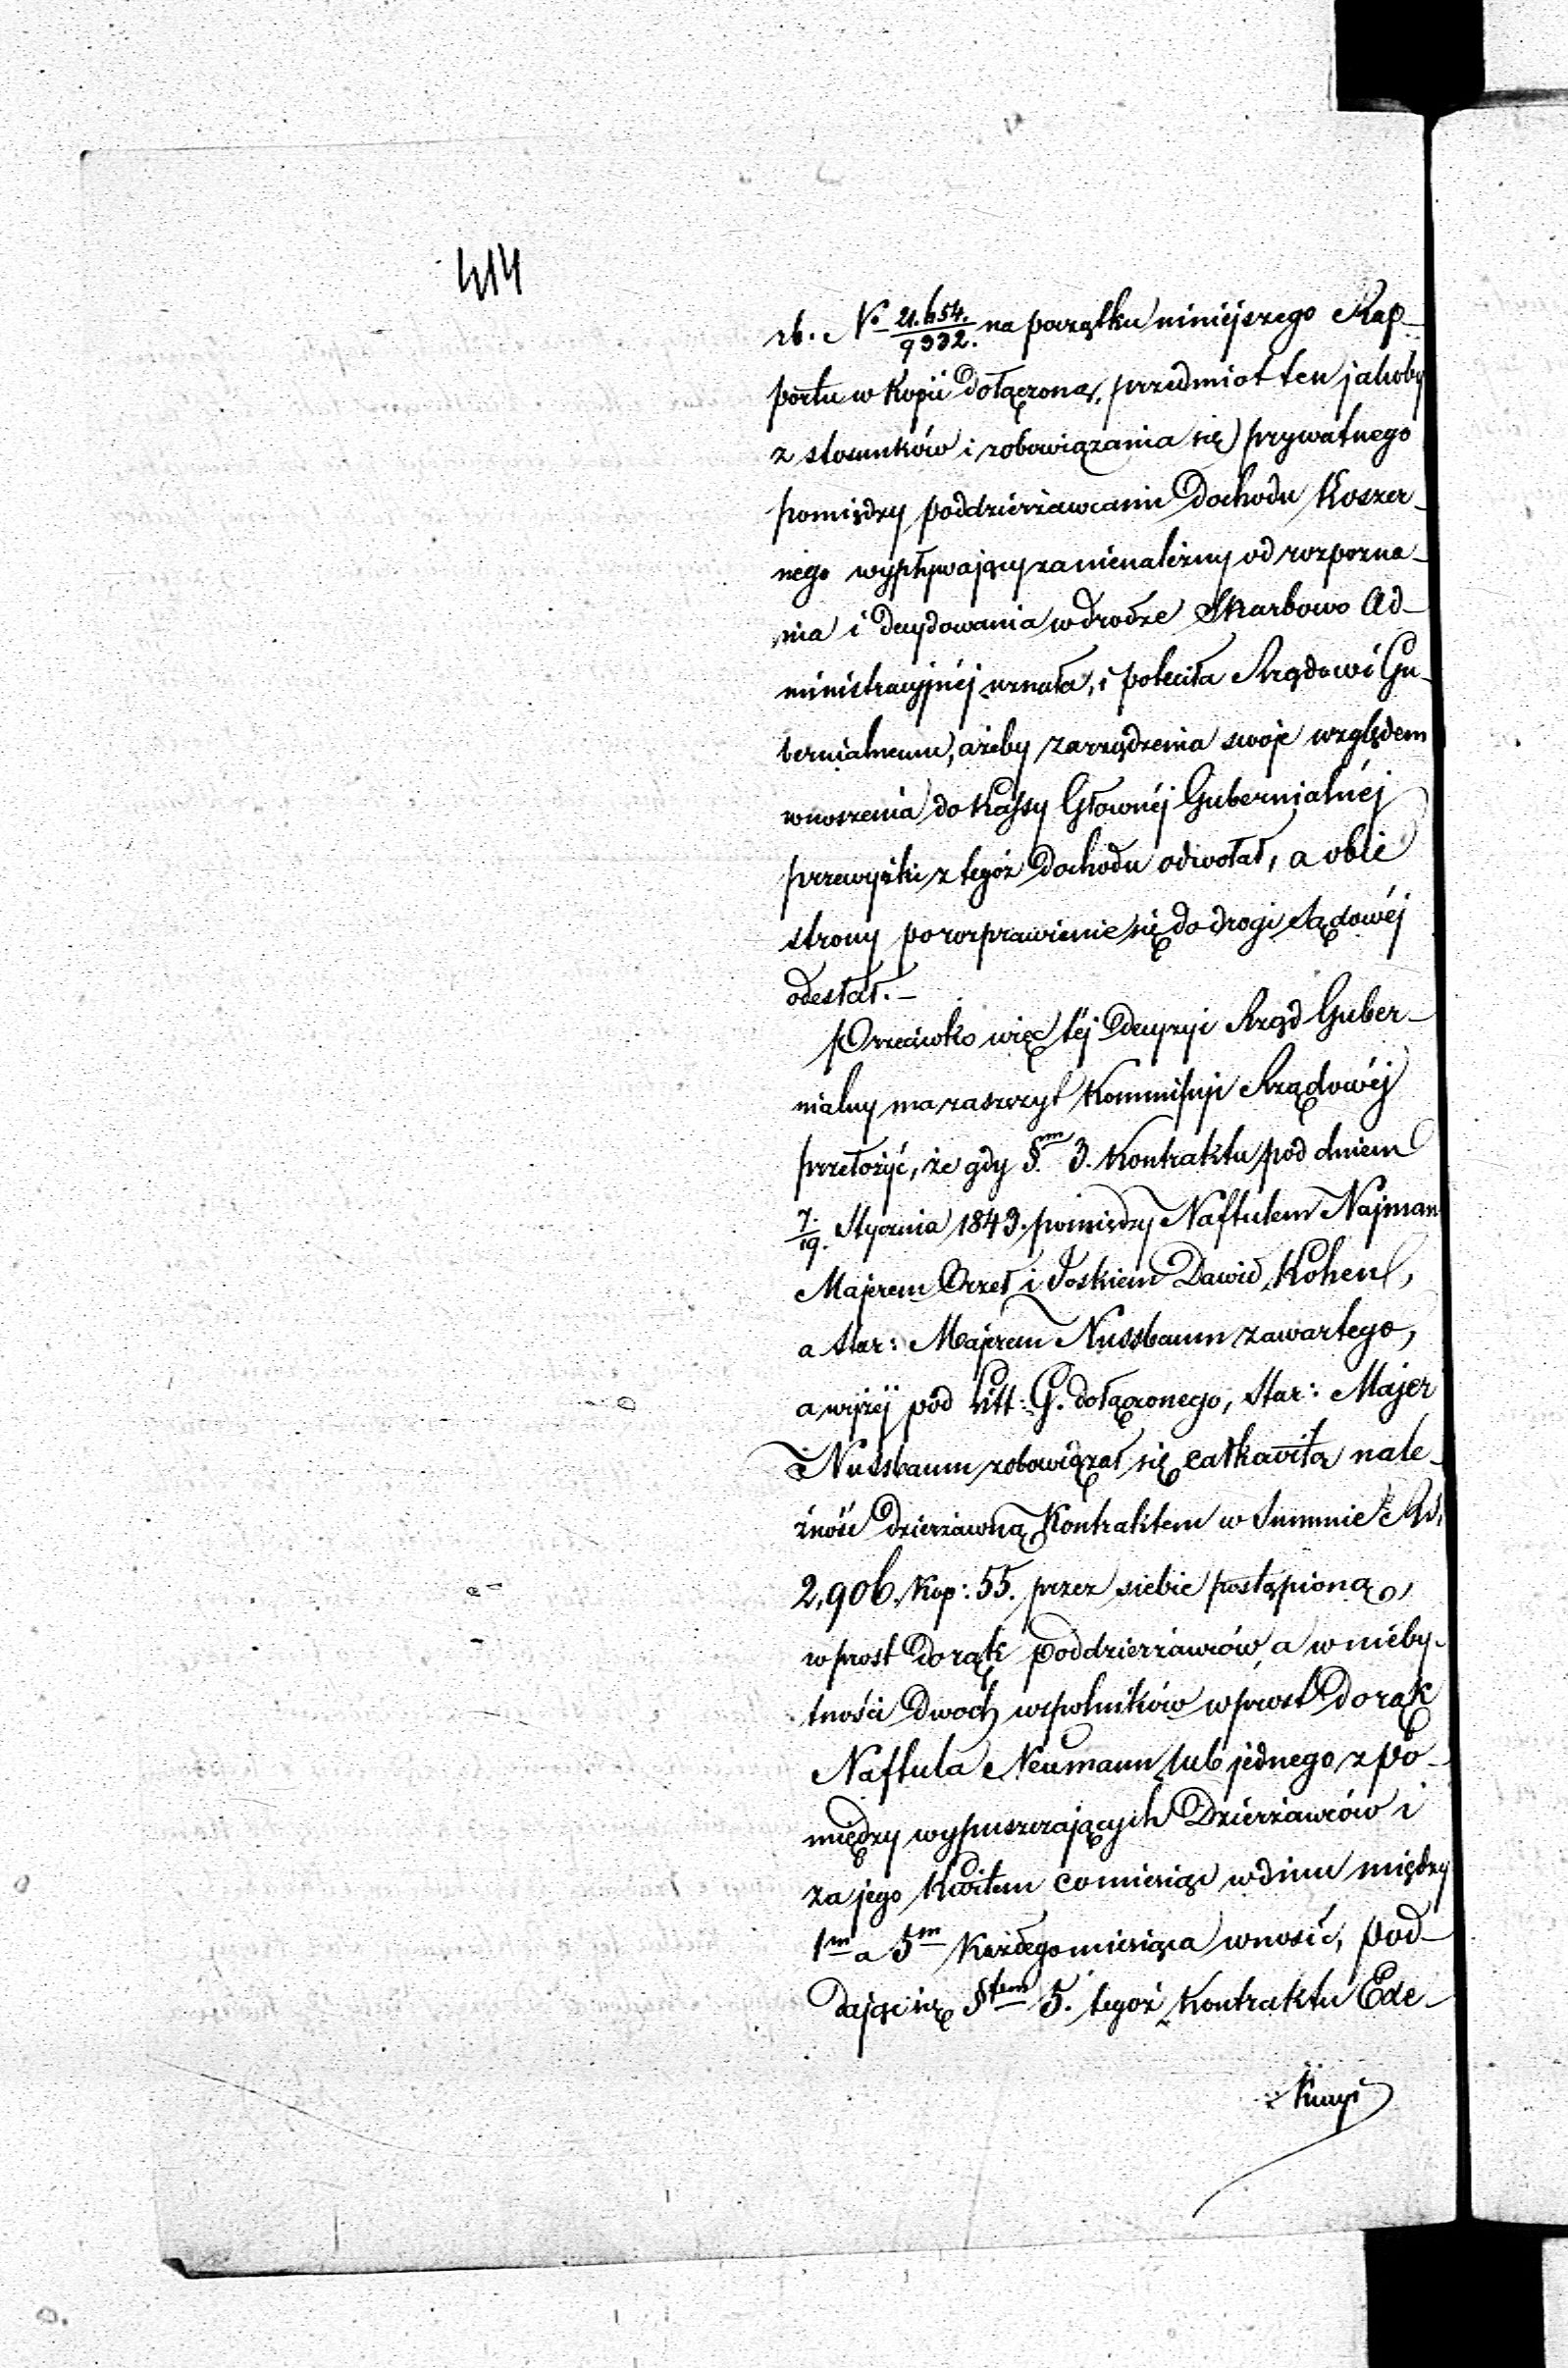 414
rb. No 21.654./9332. na początku niniejszego Rap-
portu w Kopii dołączoną, przedmiot ten jakoby
z stosunków i zobowiązania się prywatnego
pomiędzy poddzierżawcami Dochodu Koszer-
nego wypływający za nienależny od rozpozna-
nia i decydowania w drodze Skarbowo Ad-
ministracyjnéj uznała, i poleciła Rządowi Gu-
bernialnemu, ażeby zarządzenia swoje względem
wnoszenia do Kassy Głownéj Gubernialnéj
przewyżki z tegóż Dochodu odwołał, a obie
strony po rozprawienie się do drogi sądowéj
odesłał. –
Przeciwko więc téj Decyzyi Rząd Guber-
nialny ma zaszczyt Kommissyi Rządowéj
przełożyć, że gdy §m 3. Kontraktu pod dniem
7./19. Stycznia 1843. pomiędzy Naftulem Najman
Majerem Orzeł i Joskiem Dawid Kohen,
a Star: Majerem Nussbaum zawartego,
a wyżéj pod Litt: G. dołączonego, Star: Majer
Nussbaum zobowiązał się całkowitą nale-
żność dzierżawną Kontraktem w Summie Rs.
2,906. Kop: 55. przez siebie postąpioną,
wprost do rąk poddzierżawców, a w nieby-
tności dwóch wspólników wprost do rąk
Naftula Neumann lub jednego z po-
między wypuszczających Dzierżawców i
za jego Kwitem co miesiąc w dniu między
1m a 5m Każdego miesiąca wnosić, pod-
dając się §tem 5. tegoż Kontraktu Exe-
kucyi